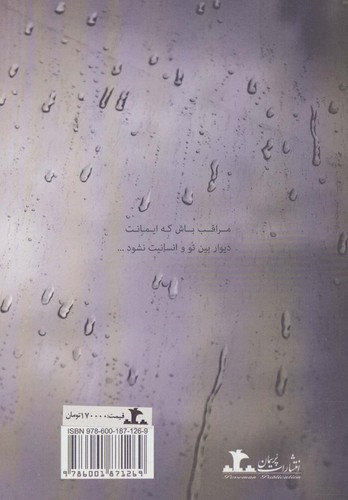 مراقب باش که ایمانت
دیوار بین تو و انسانیت نشود ...
قیمت: ۱۷۰۰۰۰ تومان
ISBN 978-600-187-126-9
9 786001 871269
انتشارات پُرمان